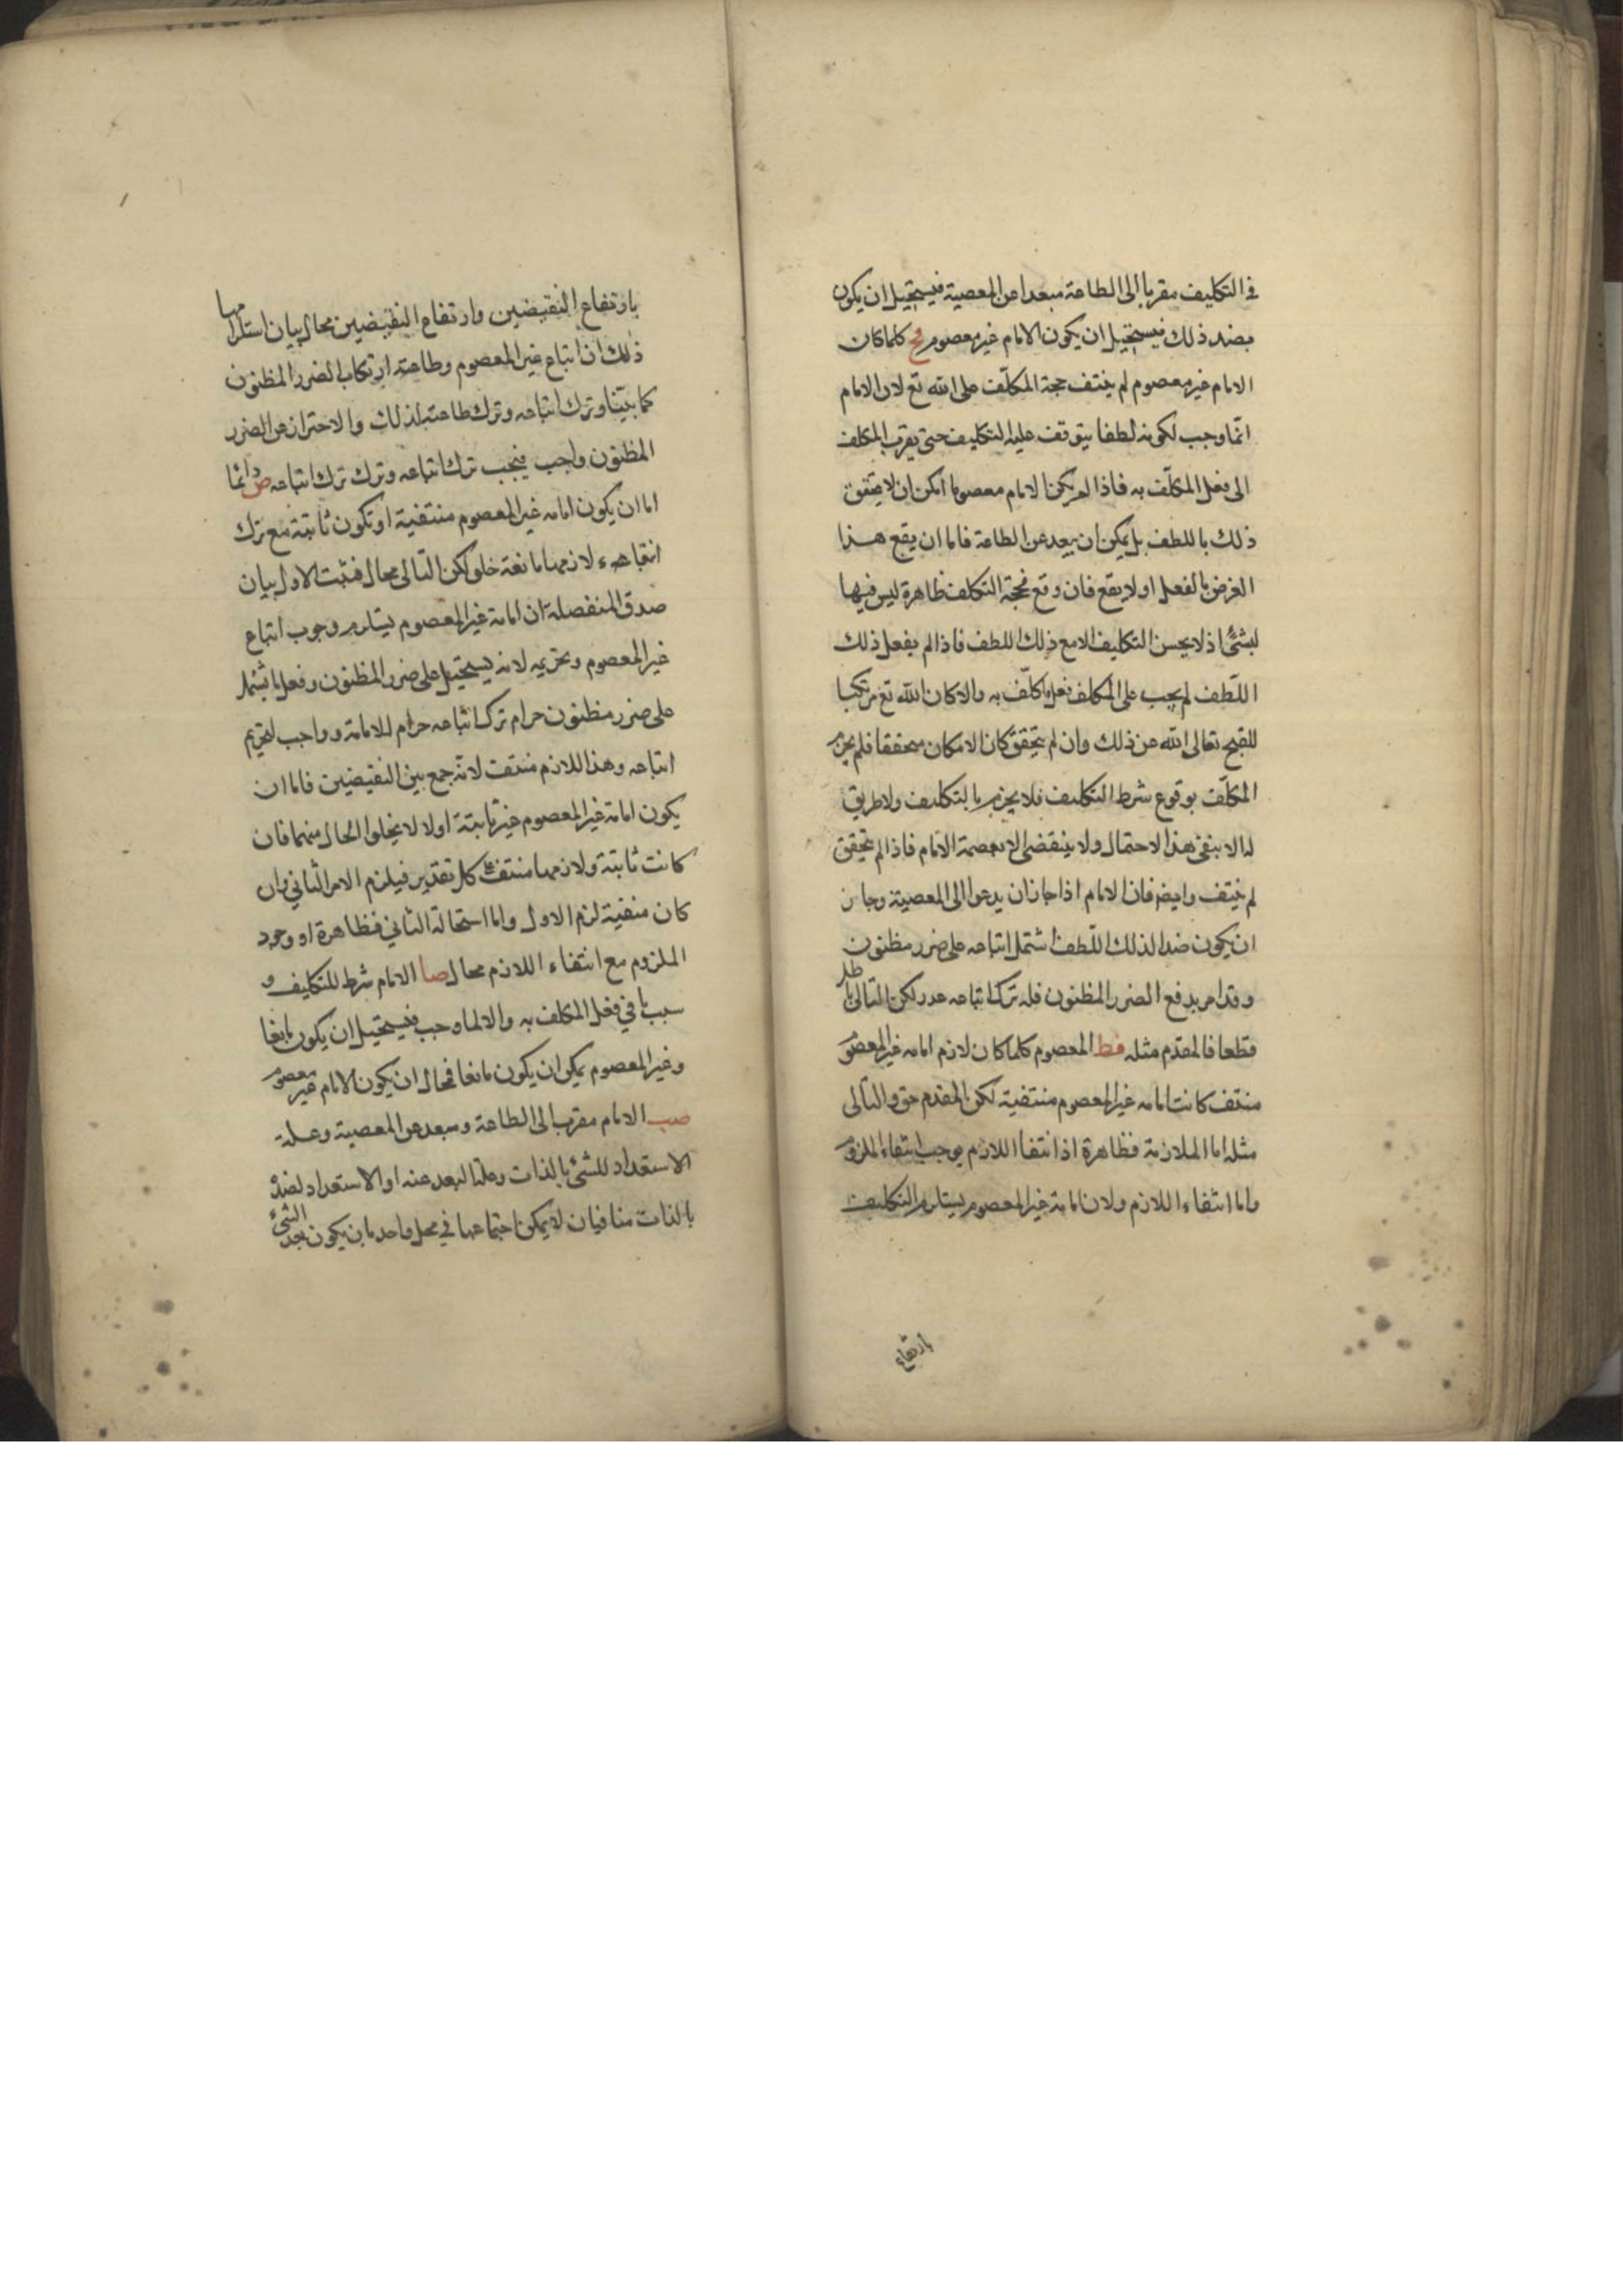 في التكليف مقربا الى الطاعة مبعدا عن المعصية فيستحيل ان يكون
بضد ذلك فيستحيل ان يكون الامام غير معصوم فح كلما كان
الامام غير معصوم لم ينتف حجة المكلف على الله تع لان الامام
انما وجب لكونه لطفا يتوقف عليه التكليف حتى يقرب المكلف
الى فعل المكلف به فاذا لم يكن الامام معصوما امكن ان لا يتحقق
ذلك باللطف بل يمكن ان يبعد عن الطاعة فاما ان يقع هذا
الفرض بالفعل او لا يقع فان وقع فحجة التكلف ظاهرة ليس فيها
لبشئ اذ لا يحسن التكليف الا مع ذلك اللطف فاذا لم يفعل ذلك
اللطف لم يجب على المكلف فعل ما كلف به والا كان الله تع مرتكبا
للقبح تعالى الله عن ذلك وان لم يتحقق كان الامكان متحققا فلم يجزم
المكلف بوقوع شرط التكليف فلا يجزم بالتكليف ولا طريق
له الا بنفي هذا الاحتمال ولا ينقضى الا بعصمة الامام فاذا لم يتحقق
لم ينتف وايض فان الامام اذا جاز ان يدعو الى المعصية وجاز
ان يكون ضدا لذلك اللطف اشتمل اتباعه على ضرر مظنون
وقد امر بدفع الضرر المظنون فله ترك اتباعه عدر لكن التالي باطل
قطعا فالمقدم مثله فط المعصوم كلما كان لازم امامه غير المعصوم
منتف كانت امامه غير المعصوم منتفية لكن المقدم حق والتالى
مثله اما الملازمة فظاهرة اذ انتفا اللازم يوجب انتفاء الملزوم
واما انتفاء اللازم ولان امامة غير المعصوم يستلزم التكليف
بارتفاع
بارتفاع النقيضين وارتفاع النقيضين محال بيان استلزامها
ذلك ان اتباع غير المعصوم وطاعته ارتكاب الضرر المظنون
كما بيننا وترك اتباعه وترك طاعته لذلك والاحتراز عن الضرر
المظنون واجب فيجب ترك اتباعه وترك ترك اتباعه ص دائما
اما ان يكون امامه غير المعصوم منتفية او تكون ثابتة مع ترك
لازمها مانعة خلو لكن التالى محال فثبت الاول بيان
صدق المنفصلة ان امامة غير المعصوم يستلزم وجوب اتباع
غير المعصوم وتحريمه لانه يستحيل على ضرر المظنون وفعل ما يشتمل
على ضرر مظنون حرام ترك اتباعه حرام للامامة وواجب لتحريم
اتباعه وهذا اللازم منتف لانه جمع بين النقيضين فاما ان
يكون امامة غير المعصوم غير ثابتة اولا لا يخلوا الحال منهما فان
كانت ثابتة ولازمها منتف على كل تقدير فيلزم الامر الثاني وان
كان منفية لزم الاول واما استحالة الثاني فظاهرة او وجود
الملزوم مع انتفاء اللازم محال صا الامام شرط للتكليف و
سبب ما في فعل المكلف به والا لما وجب فيستحيل ان يكون مانعا
وغير المعصوم يمكن ان يكون مانعا فمحال ان يكون الامام غير معصوم
صب الامام مقرب الى الطاعة ومبعد عن المعصية وعلة
الاستعداد للشئ بالذات وعلة البعد عنه او الاستعداد لضده
بالذات منافيان لا يمكن اجتماعهما في محل واحد بان يكون بعد الشئ